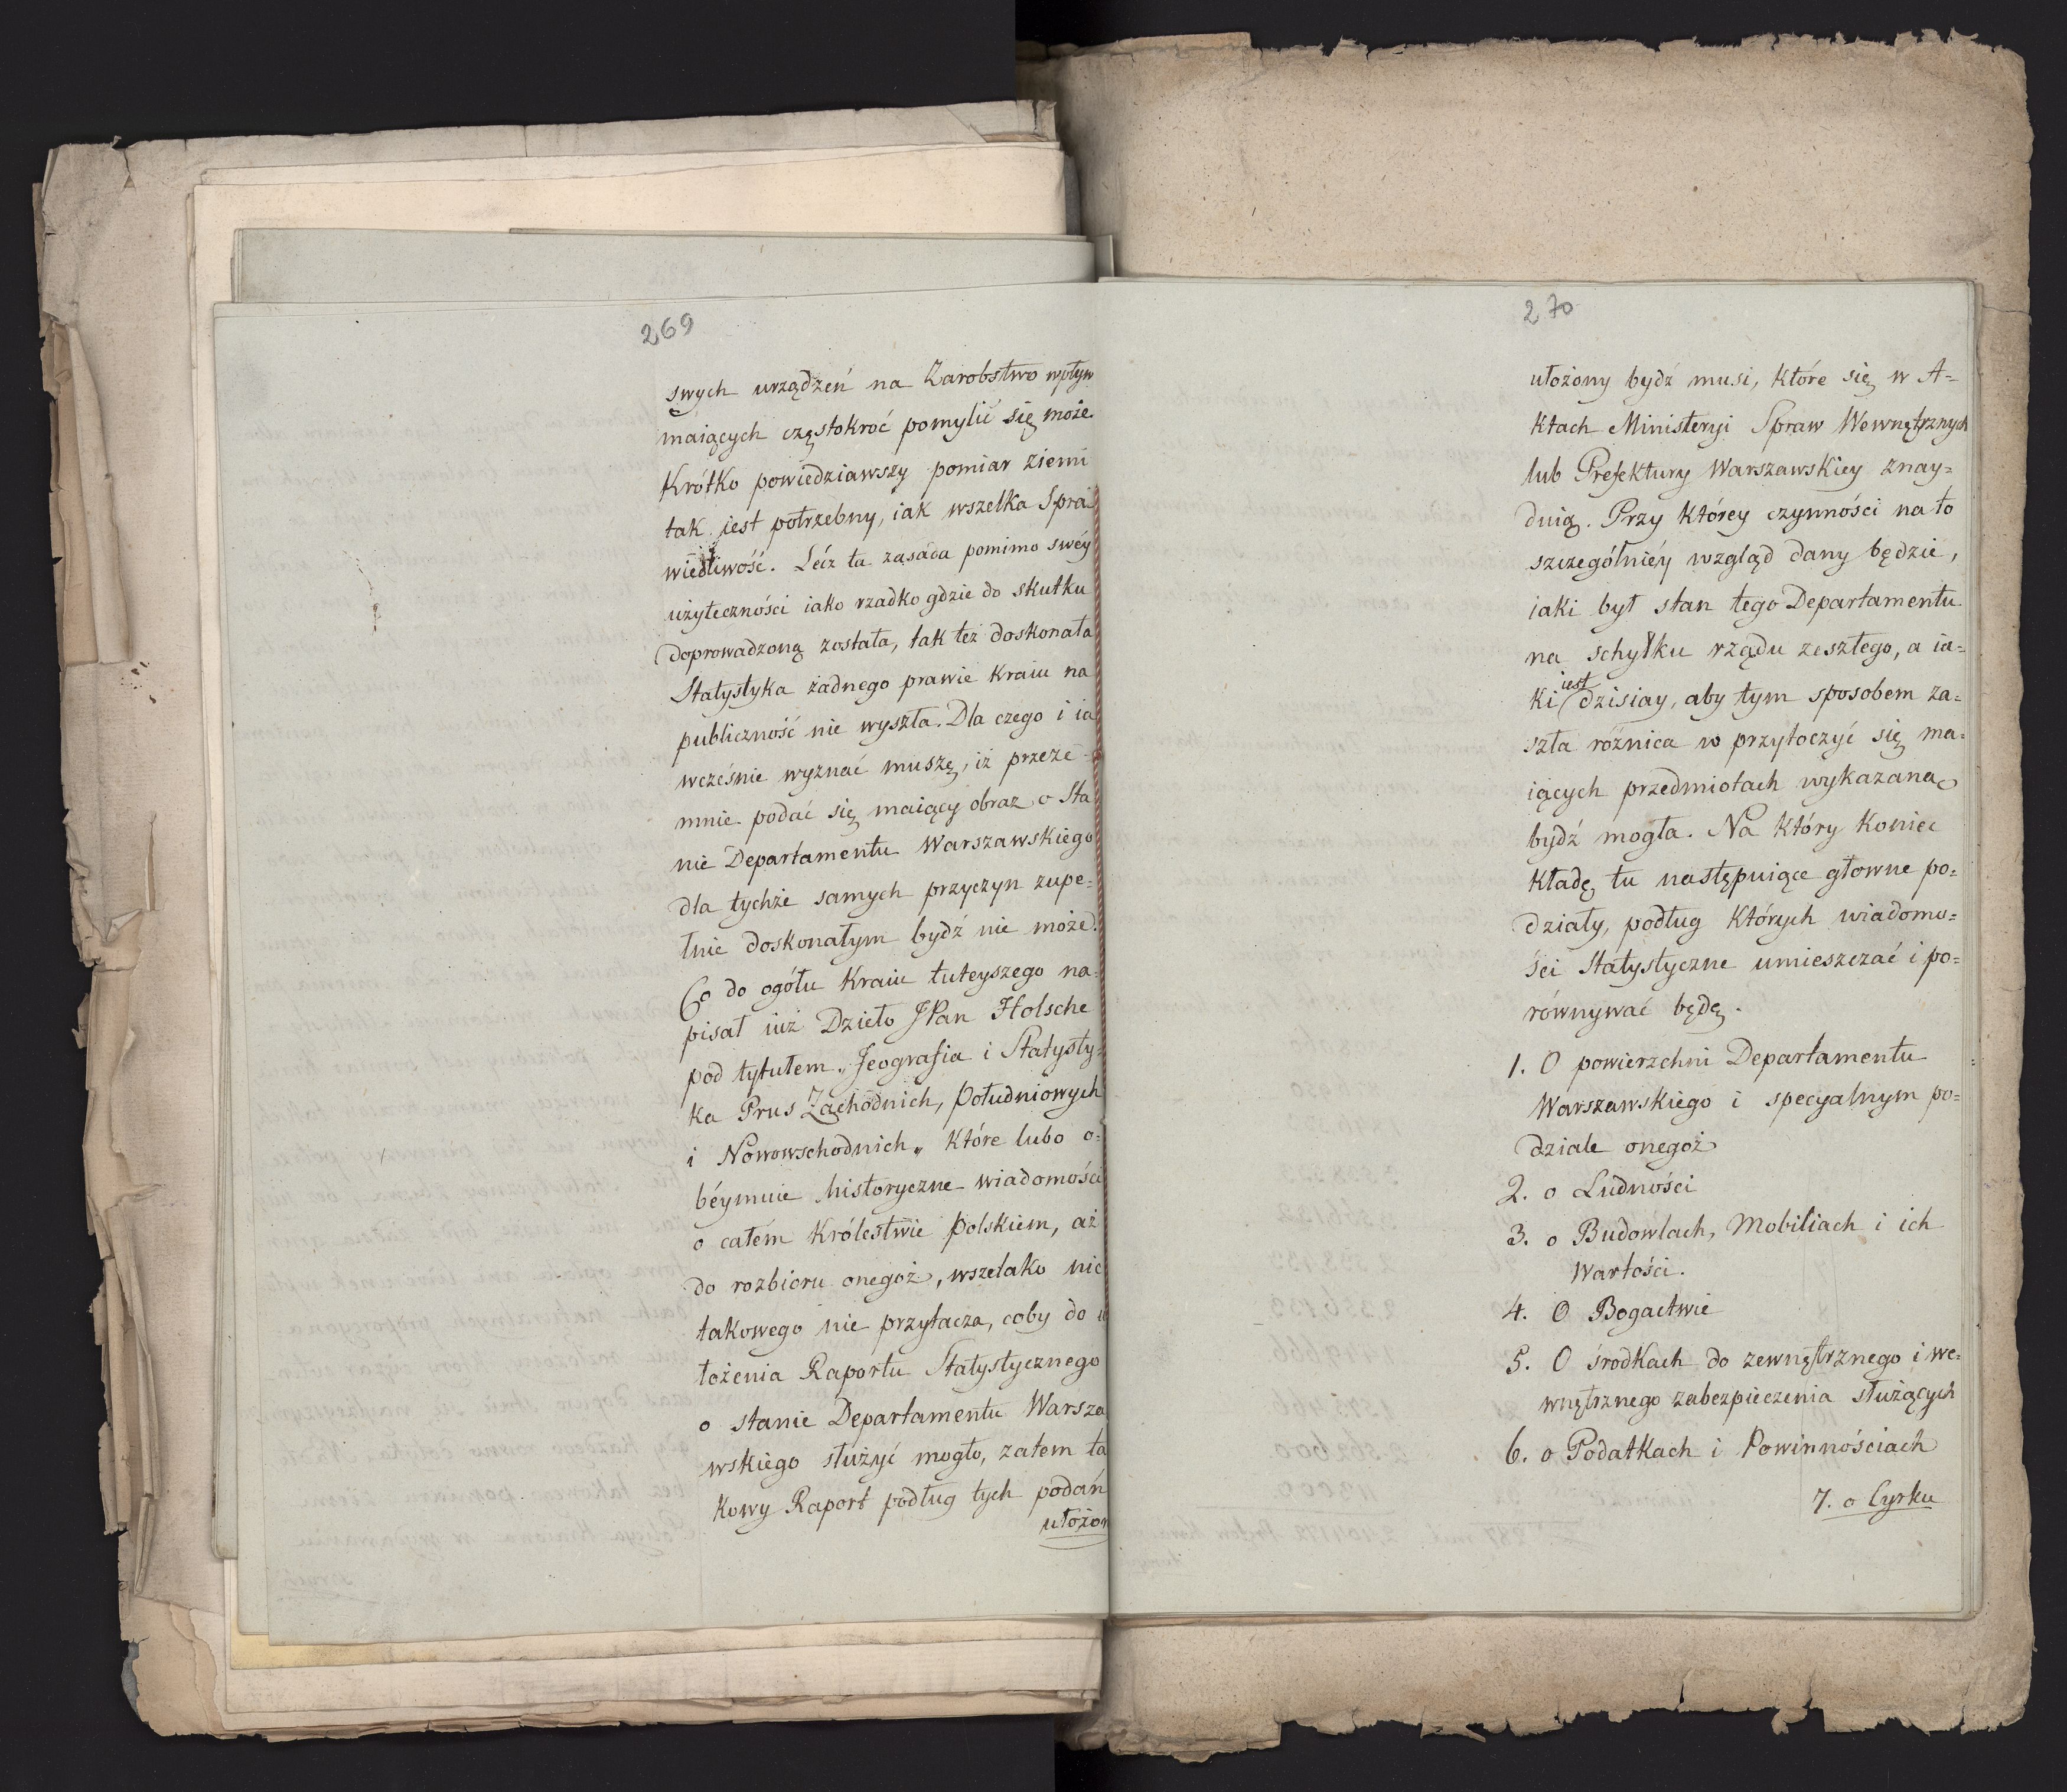 269
swych urządzeń na Zarobstwo wpływ
maiących częstokroć pomylić się może.
Krótko powiedziawszy pomiar ziemi
tak jest potrzebny, iak wszelka Spra
wiedliwość. Lécz ta zasada pomimo swéy
użyteczności iako rzadko gdzie do skutku
doprowadzoną została, tak też doskonała
Statystyka żadnego prawie Kraiu na
publiczność nie wyszła. Dla czego i ia
wcześnie wyznać muszę, iż przeze-
mnie podać się maiący obraz o Sta
nie Departamentu Warszawskiego
dla tychże samych przyczyn zupe=
łnie doskonałym bydź nie może.
Co do ogółu Kraiu tuteyszego na=
pisał iuż Dzieło JPan Holsche
pod tytułem „Jeografia i Statysty=
ka Prus Zachodnich, Południowych
i Nowowschodnich„ Które lubo o=
béymuie historyczne wiadomości
o całém Królestwie Polskiem, aż
do rozbioru onegoż, wszelako nic
takowego nie przytacza, coby do u
łożenia Raportu Statystycznego
o stanie Departamentu Warsza
wskiego służyć mogło, zatem ta
Kowy Raport podług tych podań
ułożon
270
ułożony bydź musi, Które się w A=
Ktach Ministeryi Spraw Wewnętrznych
lub Prefektury Warszawskiey znay=
duią. Przy Którey czynności na to
szczególniéy wzgląd dany będzie,
iaki był stan tego Departamentu
na schyłku rządu zeszłego, a ia=
Ki iest dzisiay, aby tym sposobem za=
szła różnica w przytoczyć się ma=
iących przedmiotach wykazaną
bydź mogła. Na Który Koniec
Kładę tu następuiące głowne po=
działy, podług Których wiadomo=
ści Statystyczne umieszczać i po=
równywać będę.
1. O powierzchni Departamentu
Warszawskiego i specyalnym po=
dziale onegoż
2. o Ludności
3. o Budowlach, Mobiliach i ich
Wartości.
4. O Bogactwie
5. O środKach do zewnętrznego i we=
wnętrznego zabezpieczenia służących
6. o Podatkach i Powinnościach
7. o Cyrku